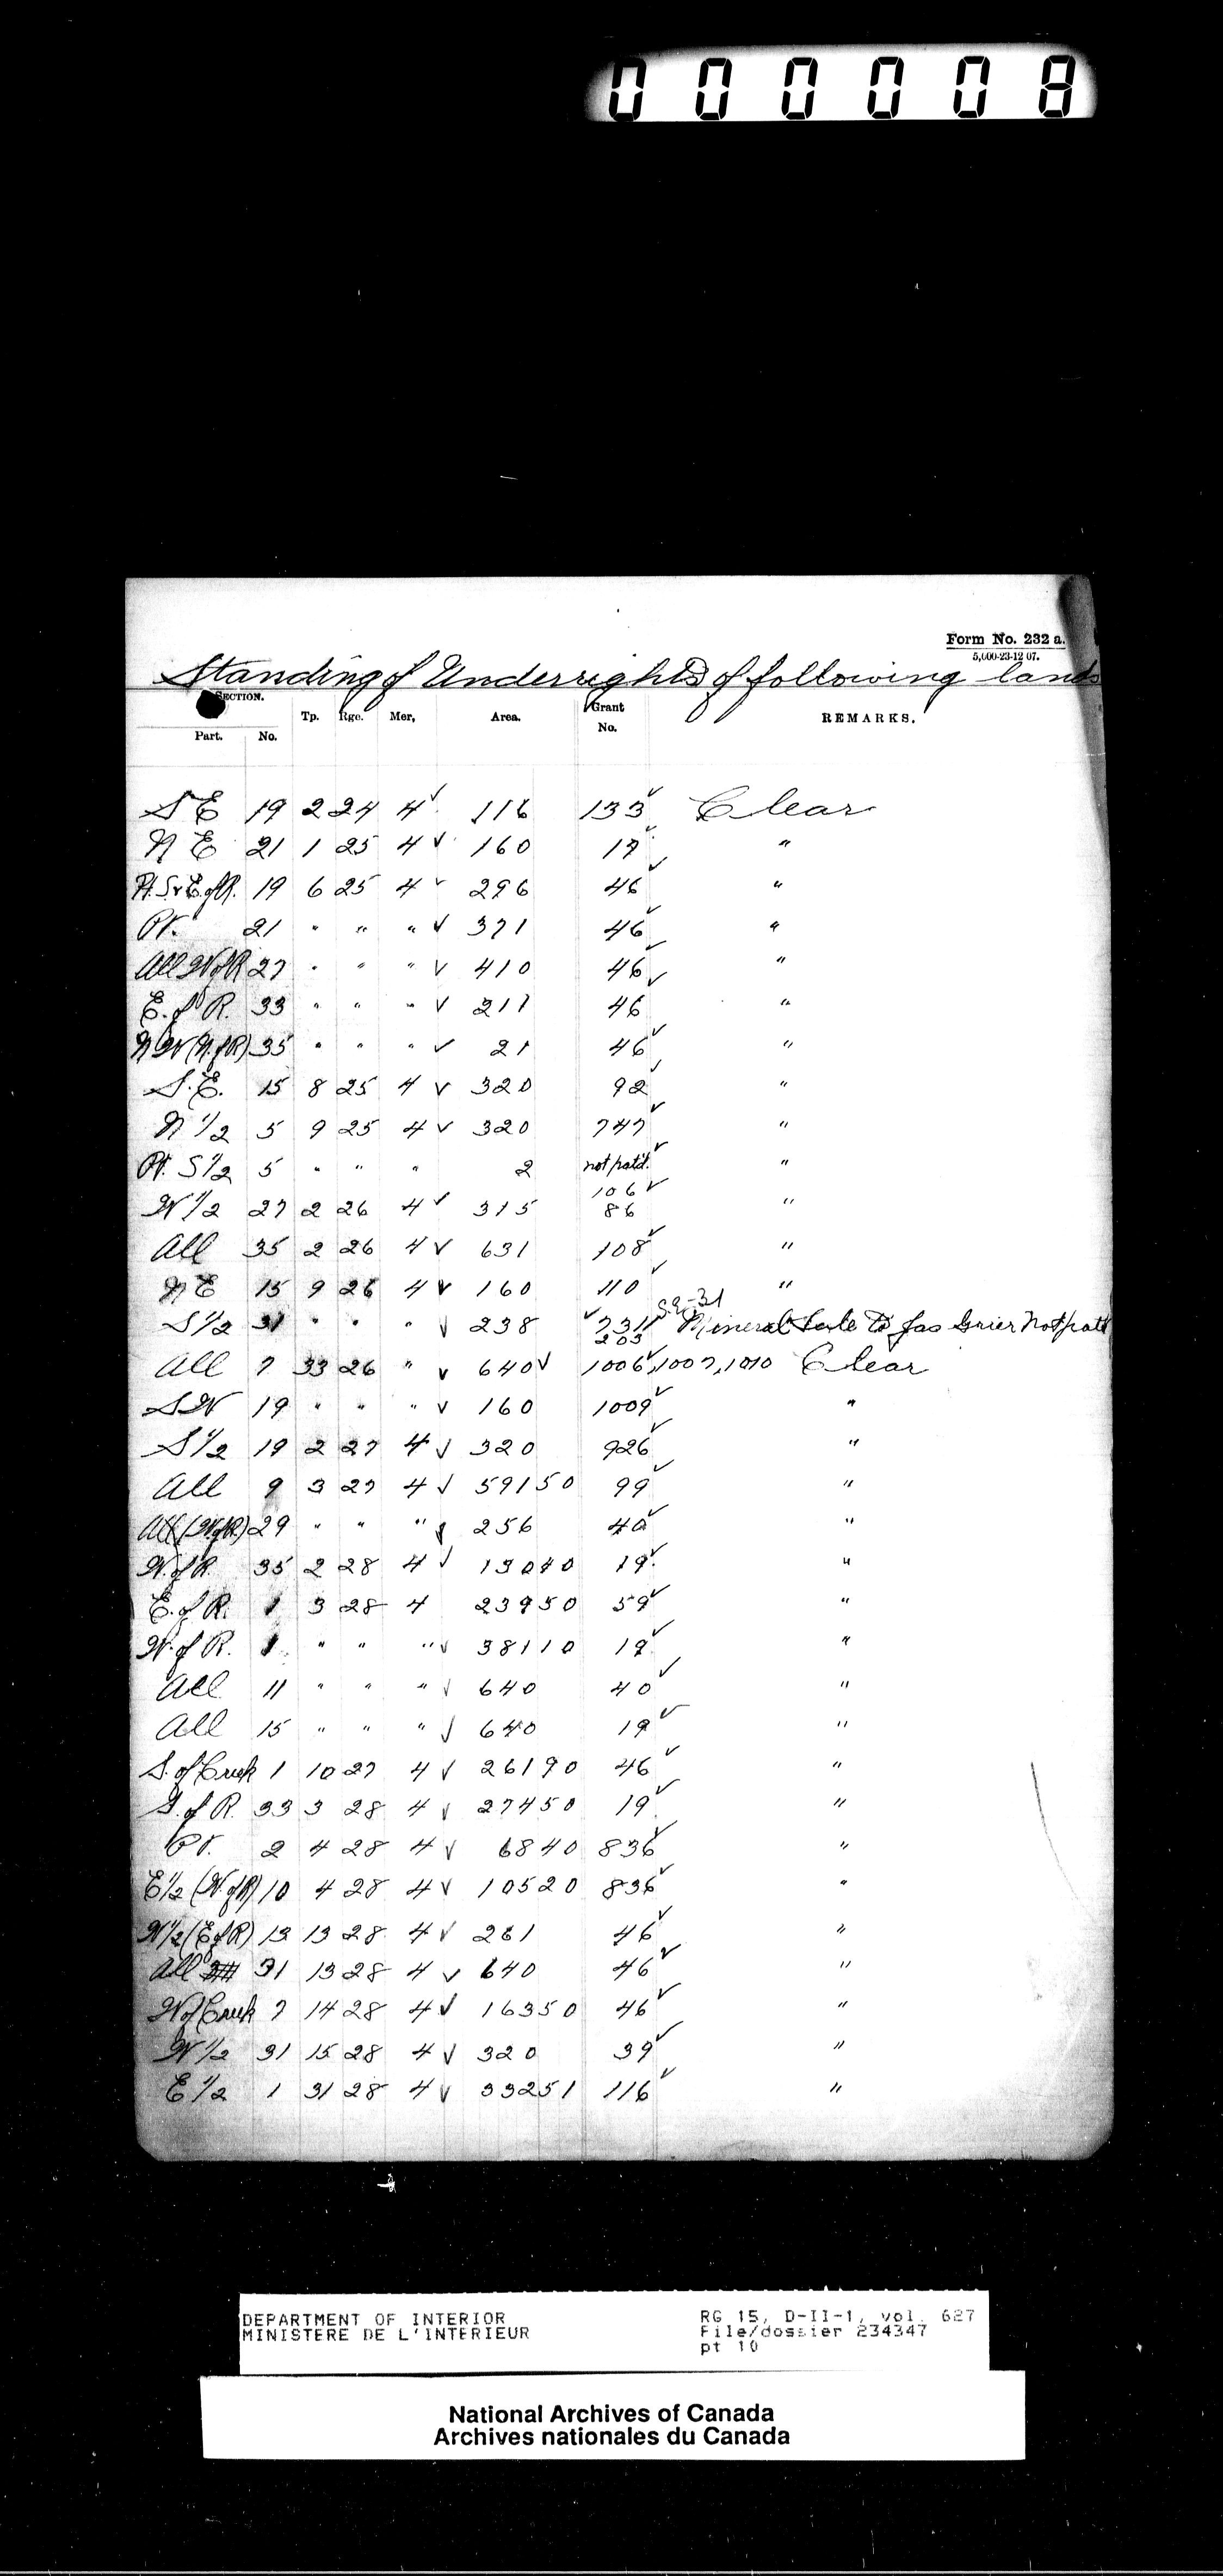 000008
Form No. 232 a.
5,000-23-12 07.
Standing of Underrights of following lands
SECTION. Tp. Rge. Mer, Area. Grant No. REMARKS.
Part. No.
S E 19 2 24 4 ✓ 116 133 ✓ Clear
N E 21 1 25 4 ✓ 160 17 ✓ "
Pt. S & E. of R. 19 6 25 4 ✓ 296 46 ✓ "
Pt. 21 " " " ✓ 371 46 ✓ "
All W of R 27 " " " ✓ 410 46 ✓ "
E. of R. 33 " " " ✓ 211 46 ✓ "
N W (N. of R) 35 " " " ✓ 21 46 ✓ "
S. E. 15 8 25 4 ✓ 320 92 ✓ "
N 1/2 5 9 25 4 ✓ 320 747 ✓ "
Pt. S 1/2 5 " " " 2 not patd. ✓ "
106 ✓
W 1/2 27 2 26 4 ✓ 315 86 "
All 35 2 26 4 ✓ 631 108 ✓ "
N E 15 9 26 4 ✓ 160 110 ✓ "
S.E-31
S 1/2 31 " " " ✓ 238 ✓ 731 Mineral Sale to Jas Grier Not patd
203
All 7 33 26 " ✓ 640 ✓ 1006 ✓, 1007, 1010 Clear
S W 19 " " " ✓ 160 1009 ✓ "
S 1/2 19 2 27 4 ✓ 320 926 ✓ "
All 9 3 27 4 ✓ 591 50 99 ✓ "
All (W. of R.) 29 " " " ✓ 256 40 ✓ "
W. of R. 35 2 28 4 ✓ 130 40 19 ✓ "
E. of R. 1 3 28 4 239 50 59 ✓ "
W. of R. 1 " " " ✓ 381 10 19 ✓ "
All 11 " " " ✓ 640 40 ✓ "
All 15 " " " ✓ 640 19 ✓ "
S. of Creek 1 10 27 4 ✓ 261 90 46 ✓ "
S. of R. 33 3 28 4 ✓ 274 50 19 ✓ "
Pt. 2 4 28 4 ✓ 68 40 836 ✓ "
E 1/2 (W. of R) 10 4 28 4 ✓ 105 20 836 ✓ "
W 1/2 (E of R) 13 13 28 4 ✓ 261 46 ✓ "
All 31 13 28 4 ✓ 640 46 ✓ "
W of Creek 7 14 28 4 ✓ 163 50 46 ✓ "
W 1/2 31 15 28 4 ✓ 320 39 ✓ "
E 1/2 1 31 28 4 ✓ 332 51 116 ✓ "
DEPARTMENT OF INTERIOR
MINISTERE DE L'INTERIEUR
RG 15, D-II-1, vol. 627
File/dossier 234347
pt 10
National Archives of Canada
Archives nationales du Canada